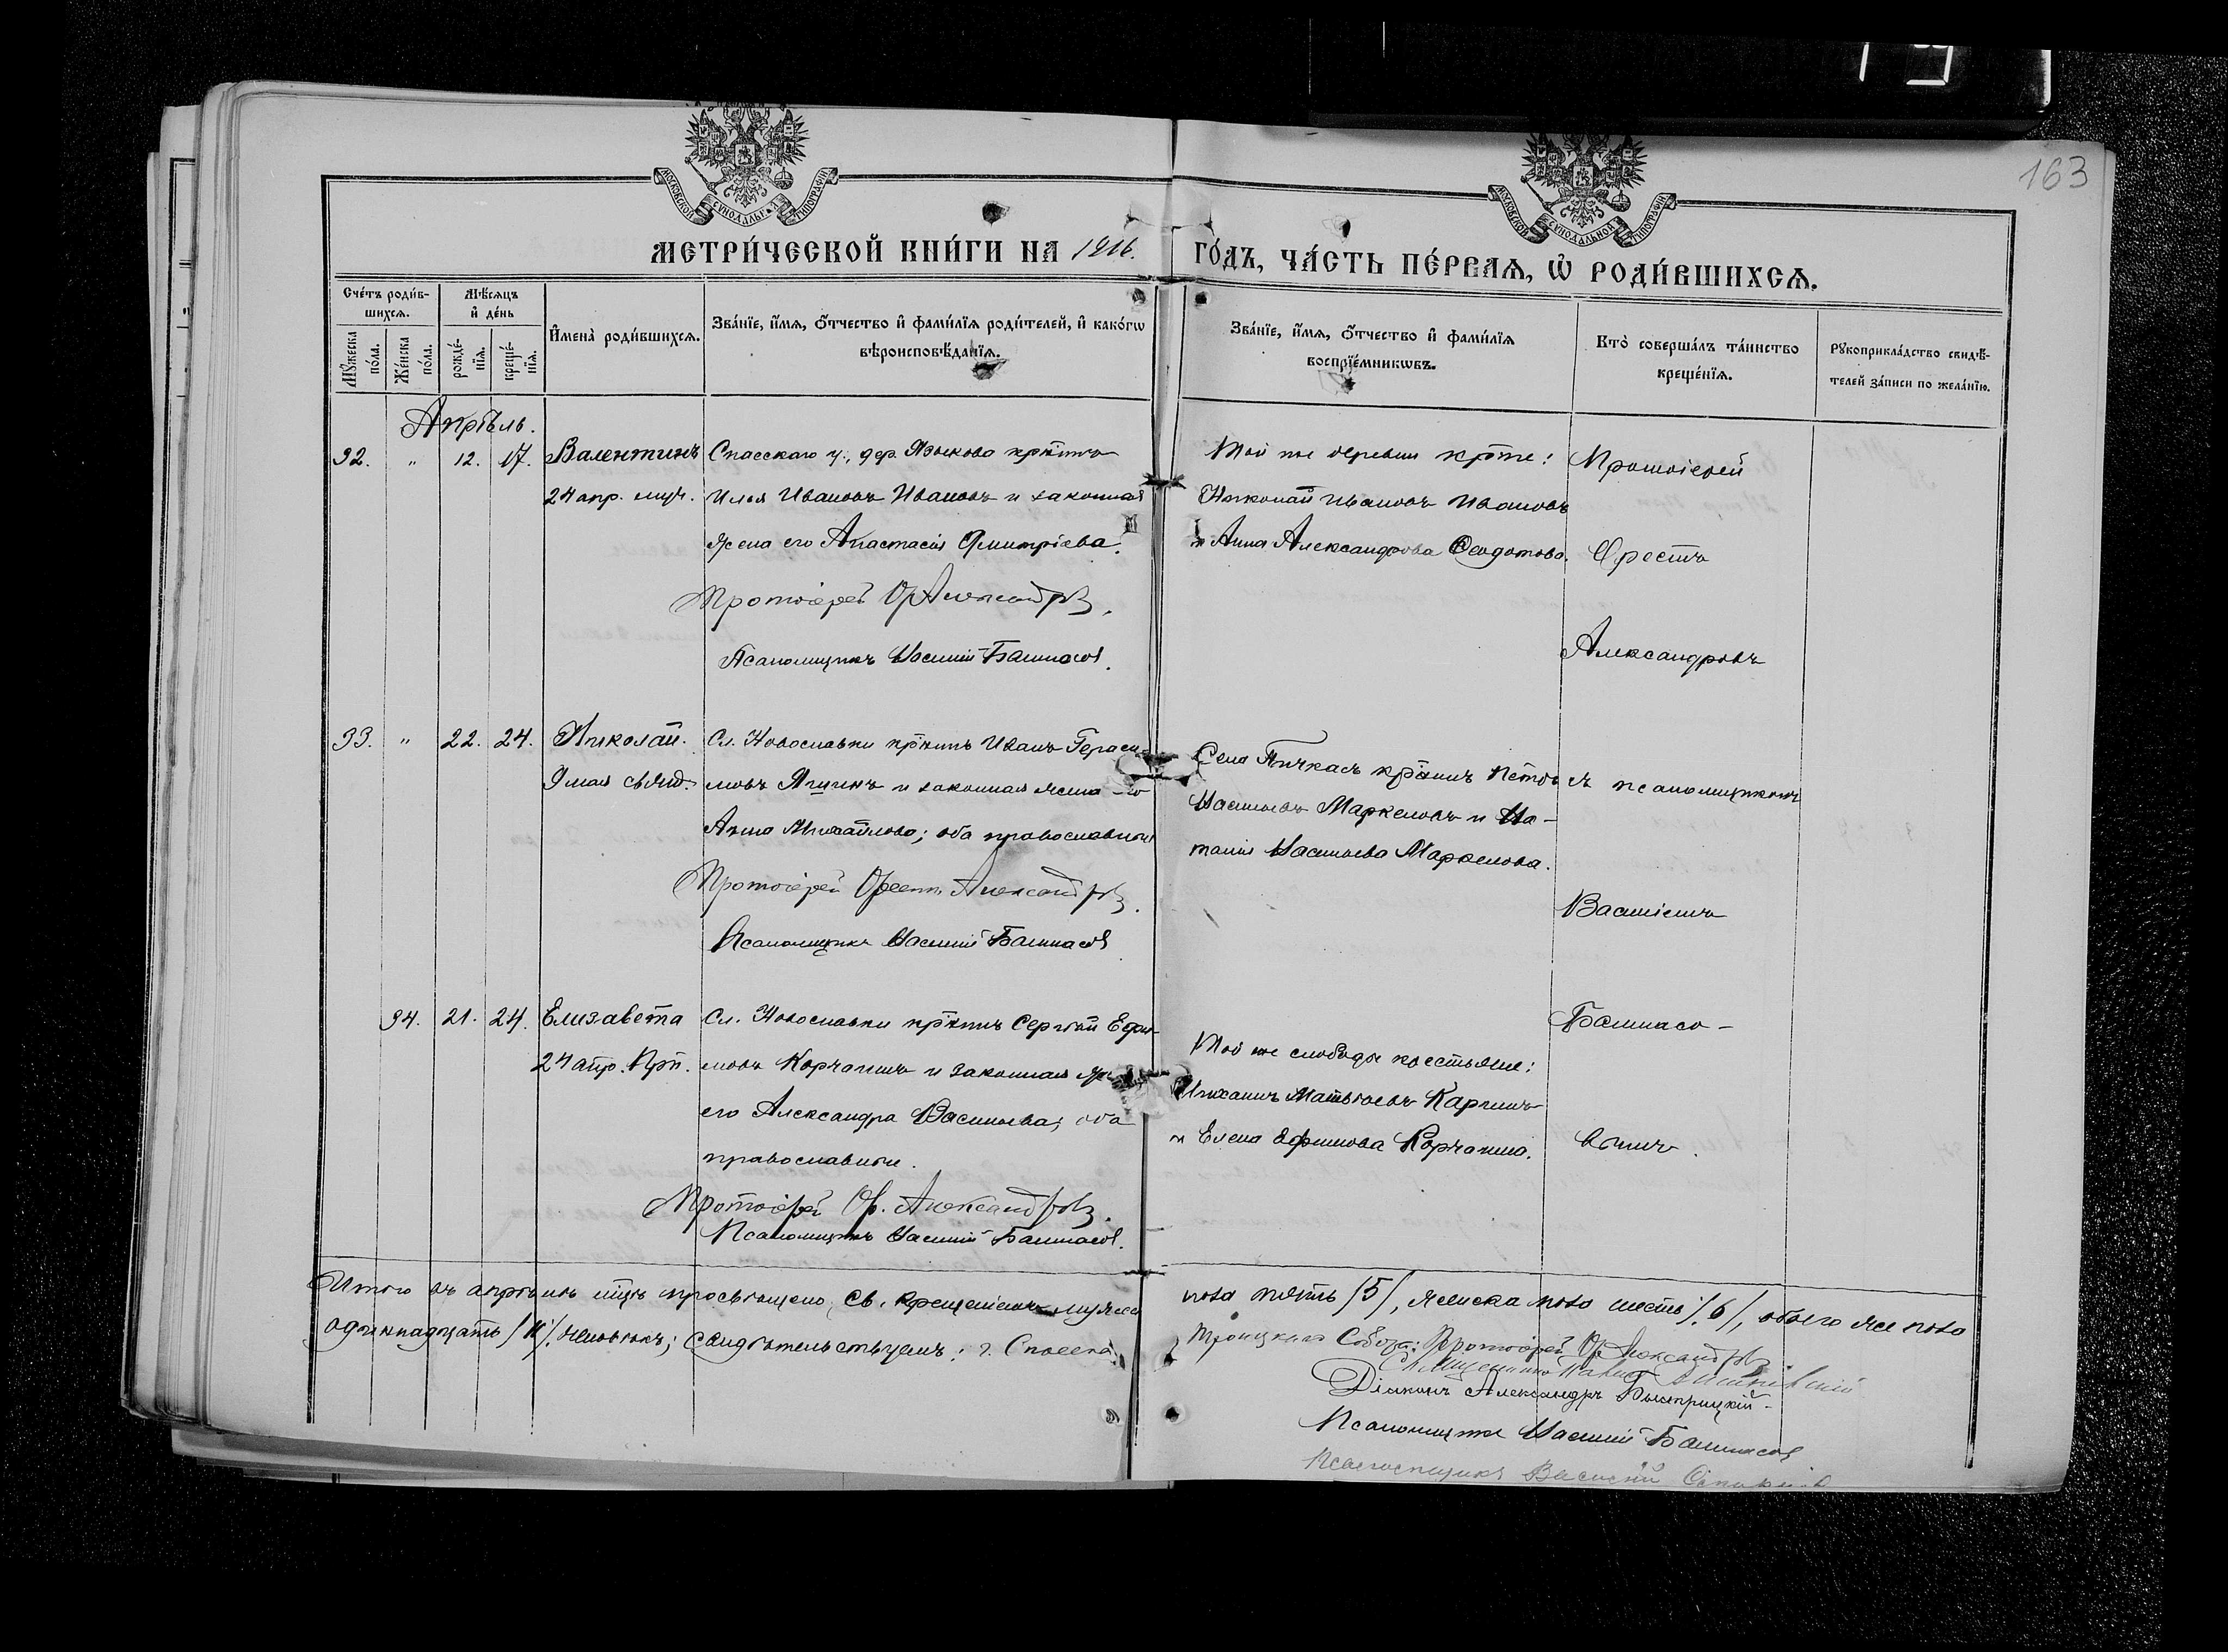 163
МОСКОВСКОЙ СѴНОДАЛЬНОЙ ТИПОГРАФІИ
МОСКОВСКОЙ СѴНОДАЛЬНОЙ ТИПОГРАФІИ
МЕТРИ́ЧЕСКОЙ КНИ́ГИ НА 1916.
ГО́ДЪ, ЧА́СТЬ ПЕ́РВАѦ, Ѡ҆ РОДИ́ВШИХСѦ.
Сче́тъ роди́в-
шихсѧ.
Мꙋ́жеска по́ла.
Же́нска по́ла.
Мѣ́сѧцъ
и҆ де́нь
рожде́-
нїѧ.
креще́-
нїѧ.
И҆мена̀ роди́вшихсѧ.
Зва́нїе, и҆́мѧ, ѻ҆́тчество и҆ фами́лїѧ роди́телей, и҆ како́гѡ
вѣроисповѣ́данїѧ.
Зва́нїе, и҆́мѧ, ѻ҆́тчество и҆ фами́лїѧ
воспрїе́мникѡвъ.
Кто̀ соверша́лъ та́инство
креще́нїѧ.
Рꙋкоприкла́дство свидѣ́-
телей за́писи по жела́нїю.
Апрѣль.
32. " 12. 17. Валентинъ
24 апр. муч.
Спасскаго у., дер. Языкова кр̃нинъ
Илья Ивановъ Ивановъ и законная
жена его Анастасія Димитріева.
Протоіерей Ор Александровъ.
Псаломщикъ Василій Башмасов.
Той же деревни кр̃не:
Николай Ивановъ Ивановъ
и Анна Александрова Ѳедотова.
Протоіерей
Орестъ
Александровъ
33. " 22. 24. Николай.
9 мая свящ.
Сл. Новославки кр̃нинъ Иванъ Гераси-
мовъ Яшинъ и законная жена его
Анна Михайлова; оба православные
Протоіерей Орестъ Александровъ.
Псаломщикъ Василій Башмасов
Села кр̃нинъ Петръ
Васильевъ Маркеловъ и На-
талія Васильева Маркелова.
съ псаломщикомъ
Василіемъ
34. 21. 24. Елизавета
24 апр. Прп.
Сл. Новославки кр̃нинъ Сергѣй Ефи-
мовъ Корчагинъ и законная жена
его Александра Васильева; оба
православные.
Протоіерей Ор. Александровъ.
Псаломщикъ Василій Башмасов.
Той же слободы крестьяне:
Матвѣевъ
и Елена Ефимова Корчагина.
Башмасо-
вымъ.
Итого въ апрѣлѣ мцѣ просвѣщено Св. Крещеніемъ мужска
пола пять /5/, женска пола шесть /6/, обоего же пола
одиннадцать /11/ человѣкъ; свидѣтельствуемъ: г. Спасска
Троицкаго Собора: Протоіерей Ор Александровъ.
Священникъ Павелъ
Діаконъ Александръ Быстрицкій
Псаломщикъ Василій Башмасов
Псаломщикъ Василій